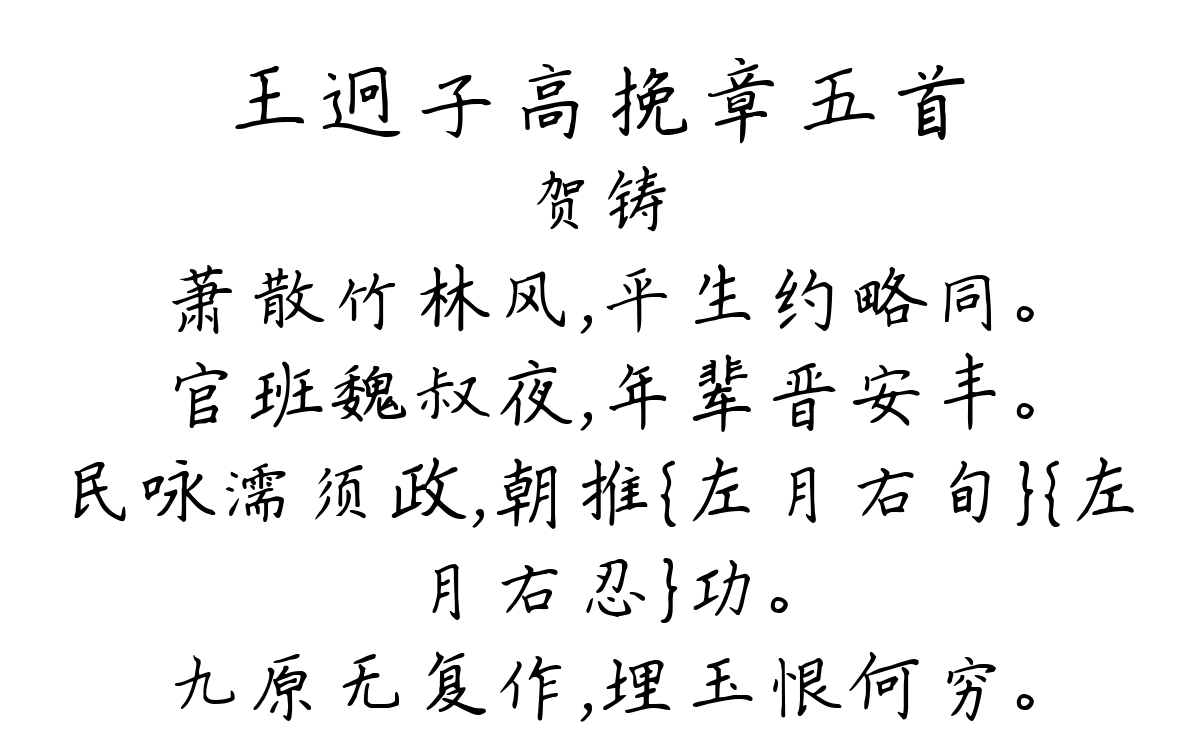 王迥子高挽章五首
贺铸
萧散竹林风,平生约略同。
官班魏叔夜,年辈晋安丰。
民咏濡须政,朝推{左月右旬}{左
月右忍}功。
九原无复作,埋玉恨何穷。